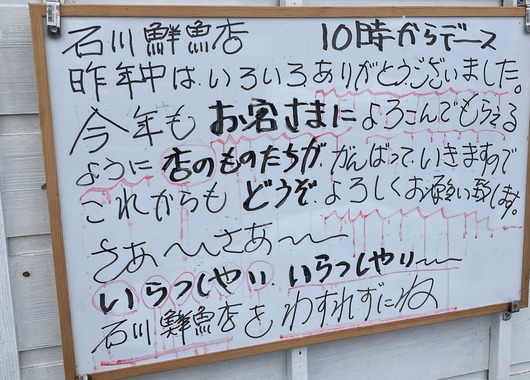 石川鮮魚店 10時からデース
昨年中は、いろいろ、ありがとうございました。
今年も お客さまに よろこんでもらえる
ように 店のものたちが がんばって、いきますので
これからも どうぞ よろしくお願い致します。
さあ〜〜さあ〜〜
いらっしゃい、いらっしゃい〜〜
石川鮮魚店をわすれずにね